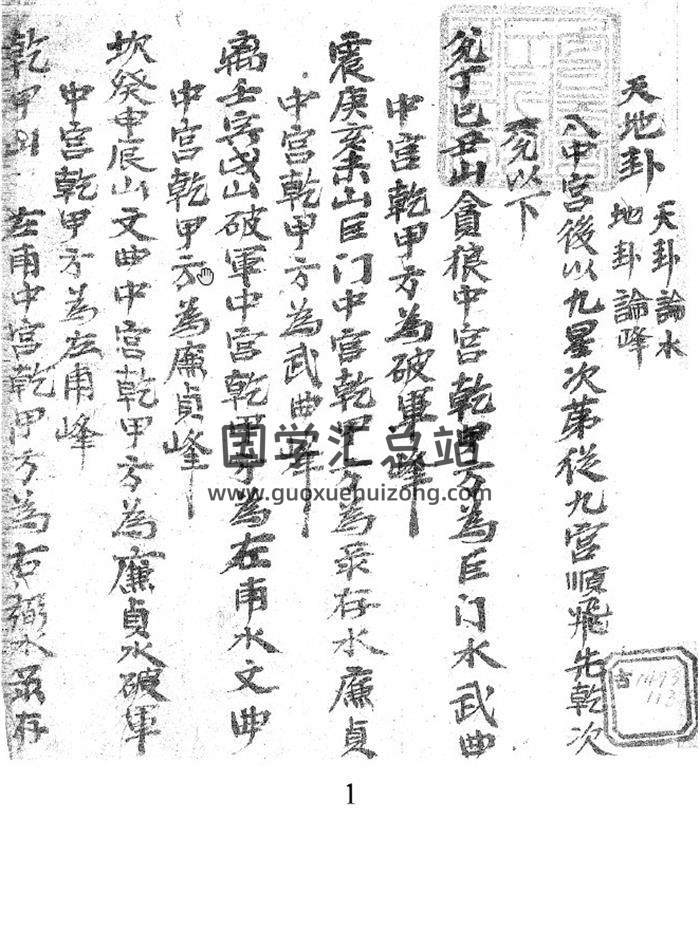 天地卦 天卦論水
地卦論峰
入中宮後以九星次第從九宮順飛先乾次
兌以下
兌丁巳丑山貪狼中宮乾甲方為巨门水武曲
中宮乾甲方為破軍峰
震庚亥未山巨门中宮乾甲方為彔存水廉貞
中宮乾甲方為武曲峰
离壬寅戌山破軍中宮乾甲方為左甫水文曲
中宮乾甲方為廉貞峰
坎癸申辰山文曲中宮乾甲方為廉貞水破軍
中宮乾甲方為左甫峰
乾甲 左甫中宮乾甲方為右弼水彔存
国学汇总站
www.guoxuehuizong.com
古
1493
113
1